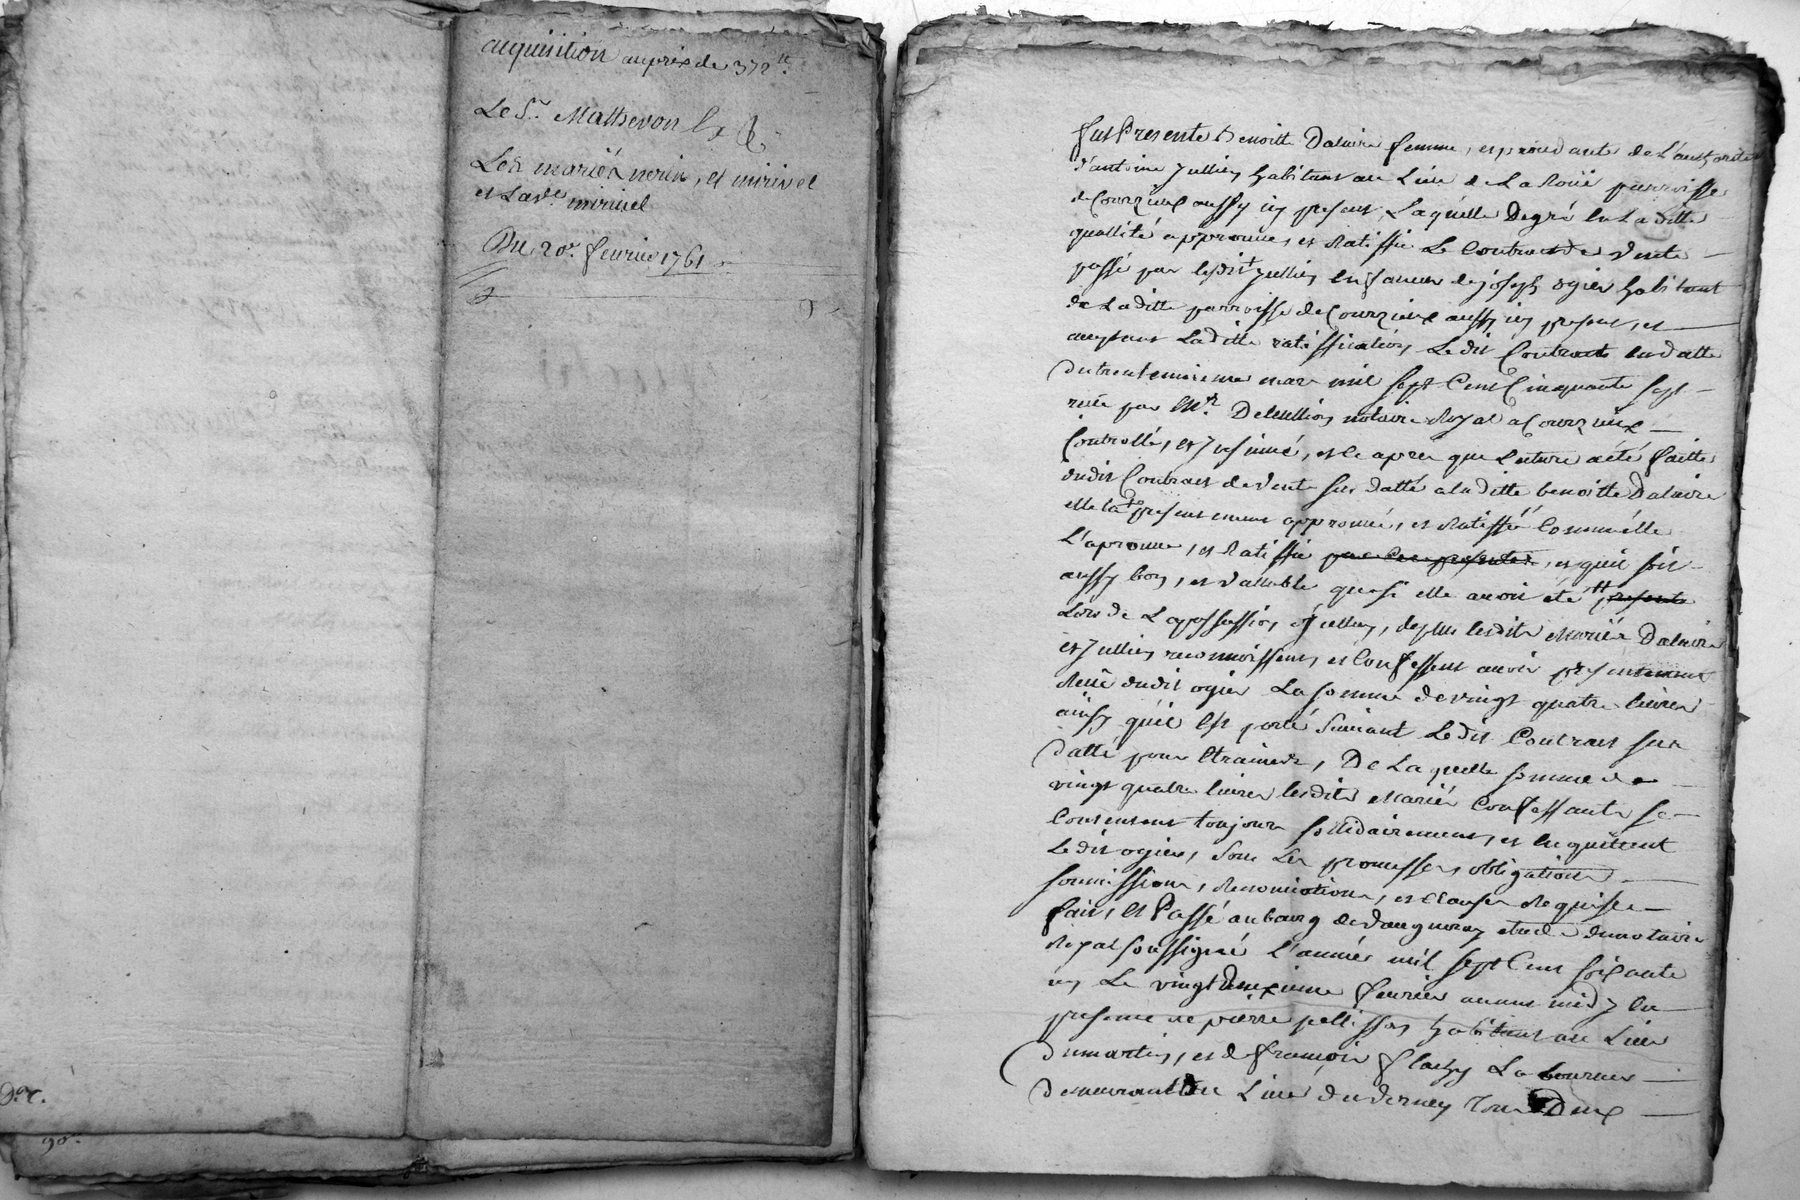 acquisition au prix de 372 ll.
Le Sr. Mathevon
Les mariés nerin, et mirivel
et la ve. mirivel
Du 20e. fevrier 1761
Der.
90.
fut Presente Benoitte Dalaire femme, et procedante de l'authorité
d'antoine Jullien habitant au Lieu de La Roüe parroisse
de Courzieux aussy icy present, Laquelle De gré en La ditte
quallité approuve, et Ratiffie Le Contract de vente
passé par ledit Jullien en faveur de joseph ogier habitant
de La ditte parroisse de Courzieux aussy icy present, et
acceptant La ditte ratiffication, Le dit Contract en datte
du trentenieme mars mil sept Cent Cinquante sept
receu par Mr. Deleullion notaire Royal a Courzieux
Controllé, et Insinué, et ce apres que Lecture a été faitte
du dit Contract de vente sus datté a la ditte benoitte Dalaire
elle la presentement approuvé, et Ratiffié Comme elle
L'aprouve, et Ratiffie par Ces presentes, et quil soit
aussy bon, et vallable que si elle avoit été presente
Lors de La passassion d'icelluy, de plus lesdits Mariés Dalaire
et Jullien reconnoissent, et Confessent avoir presentement
Receu du dit ogier La somme de vingt quatre livres
ainsy qu'il Est porté Suivant Le dit Contract sus
datté pour Etraines, De Laquelle somme de
vingt quatre livres lesdits Mariés Confessants se
Contentent toujours sollidairement, et En quittent
Le dit ogier, Sous Les promesses, obligations
soumissions, Renonciations, et Clauses Requises
fait, Et Passé au bourg de Vaugneray etude du notaire
Royal soussigné L'année mil sept Cent soixante
un Le vingt Deuxieme fevrier avant midy En
presence de pierre pellisson habitant au Lieu
du martin, et de françois flachy La boureur
demeurant Lieu du verney Tous Deux